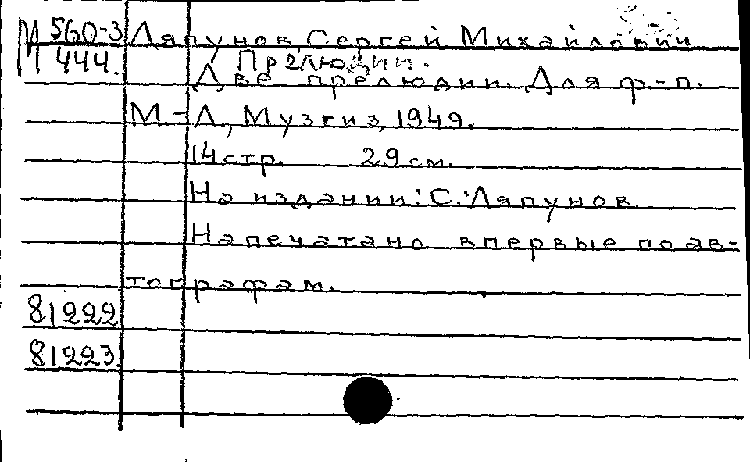 М 560-3 Ляпунов Сергей Михайлович
М 444. Прелюдии.
Две прелюдии. Для ф.-п.
М-Л, Музгиз, 1949.
14 стр. 29 см.
На издании: С. Ляпунов.
Напечатано впервые по ав-
тографам.
81222
81223